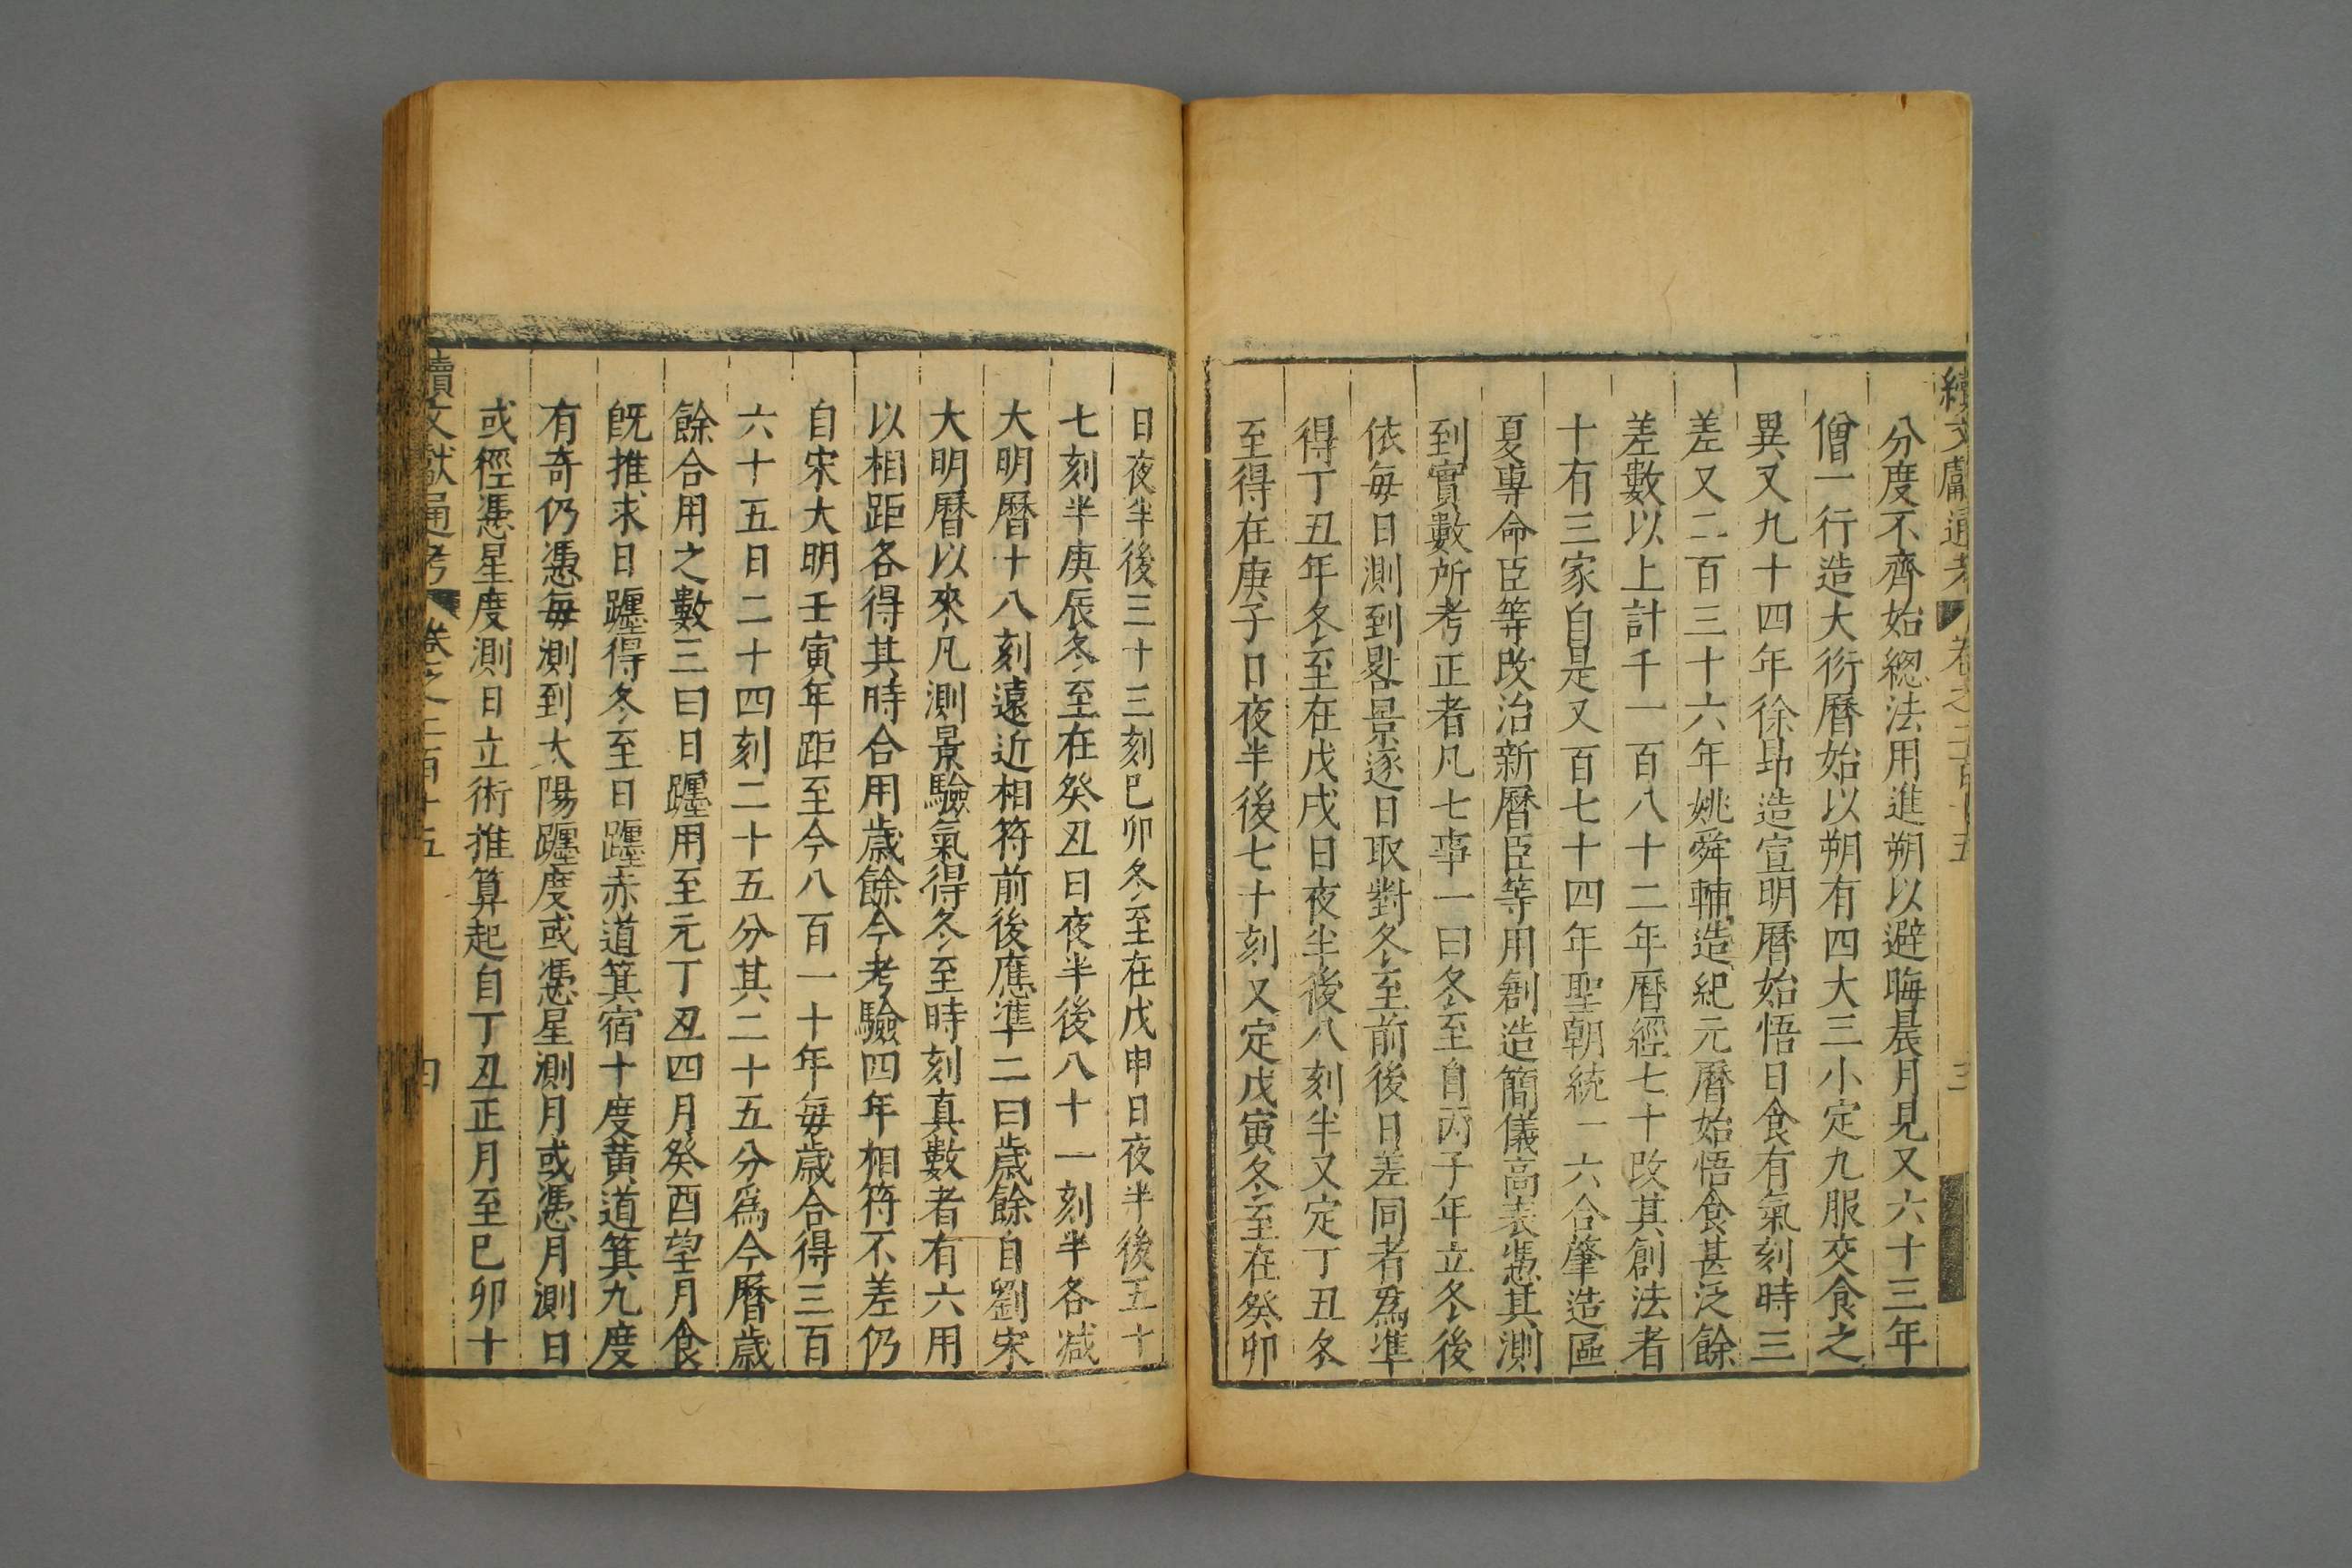 續文獻通考 卷之二百十五 三
分度不齊始總法用進朔以避晦晨月見又六十三年
僧一行造大衍曆始以朔有四大三小定九服交食之
異又九十四年徐昂造宣明曆始悟日食有氣刻時三
差又二百三十六年姚舜輔造紀元曆始悟食甚泛餘
差數以上計千一百八十二年曆經七十改其創法者
十有三家自是又百七十四年聖朝統一六合肇造區
夏專命臣等改治新曆臣等用創造簡儀高表憑其測
到實數所考正者凡七事一曰冬至自丙子年立冬後
依每日測到晷景逐日取對冬至前後日差同者爲準
得丁丑年冬至在戊戌日夜半後八刻半又定丁丑冬
至得在庚子日夜半後七十刻又定戊寅冬至在癸卯
日夜半後三十三刻巳卯冬至在戊申日夜半後五十
七刻半庚辰冬至在癸丑日夜半後八十一刻半各减
大明曆十八刻遠近相符前後應準二曰歲餘自劉宋
大明曆以來凡測景驗氣得冬至時刻真數者有六用
以相距各得其時合用歲餘今考驗四年相符不差仍
自宋大明壬寅年距至今八百一十年每歲合得三百
六十五日二十四刻二十五分其二十五分爲今曆歲
餘合用之數三曰日躔用至元丁丑四月癸酉望月食
旣推求日躔得冬至日躔赤道箕宿十度黄道箕九度
有奇仍憑每測到太陽躔度或憑星測月或憑月測日
或徑憑星度測日立術推算起自丁丑正月至巳卯十
續文獻通考 卷之二百十五 四